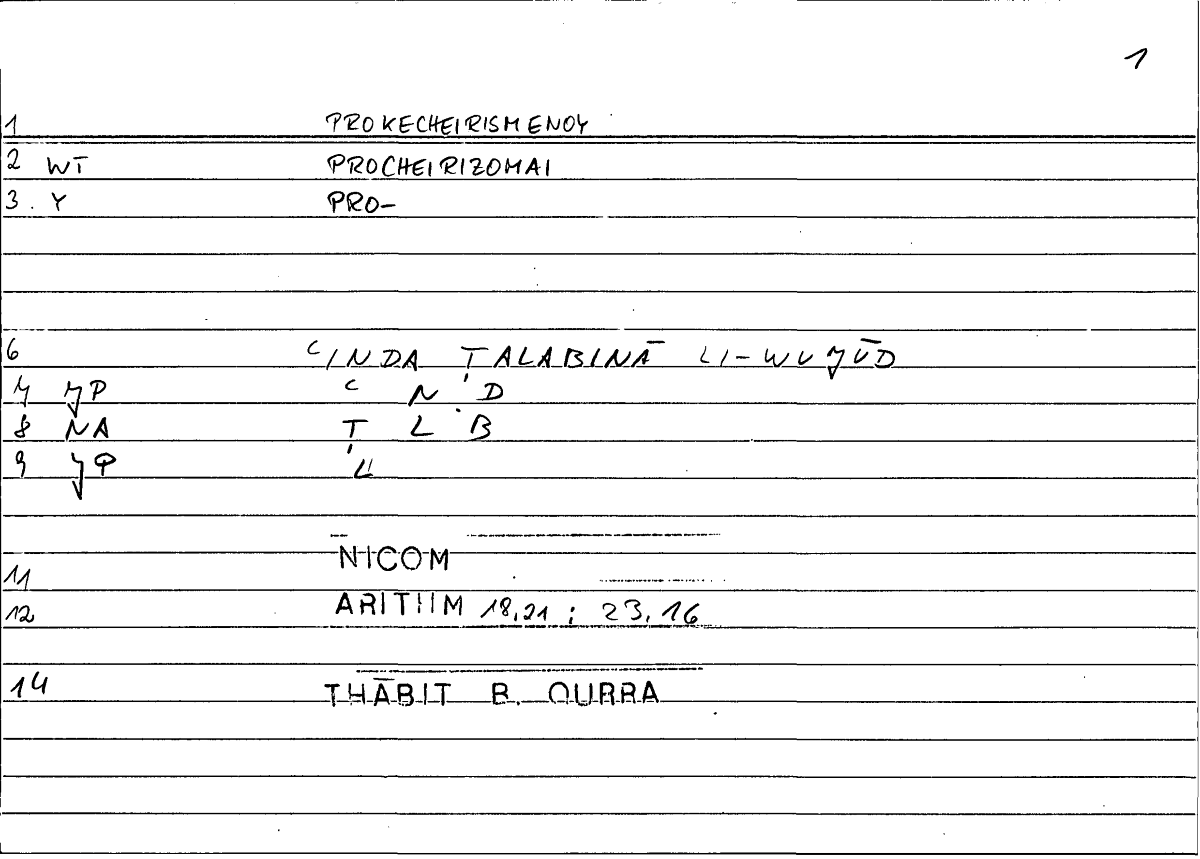 1
1 PROKECHEIRISMENOY
2 WT PROCHEIRIZOMAI
3. Y PRO-
6 ʿINDA ṬALABINĀ LI-WUJŪD
7 JP ʿ N D
8 NA Ṭ L B
9 JP L
11 NICOM
12 ARITHM 18,21 ; 23,16
14 THĀBIT B. QURRA